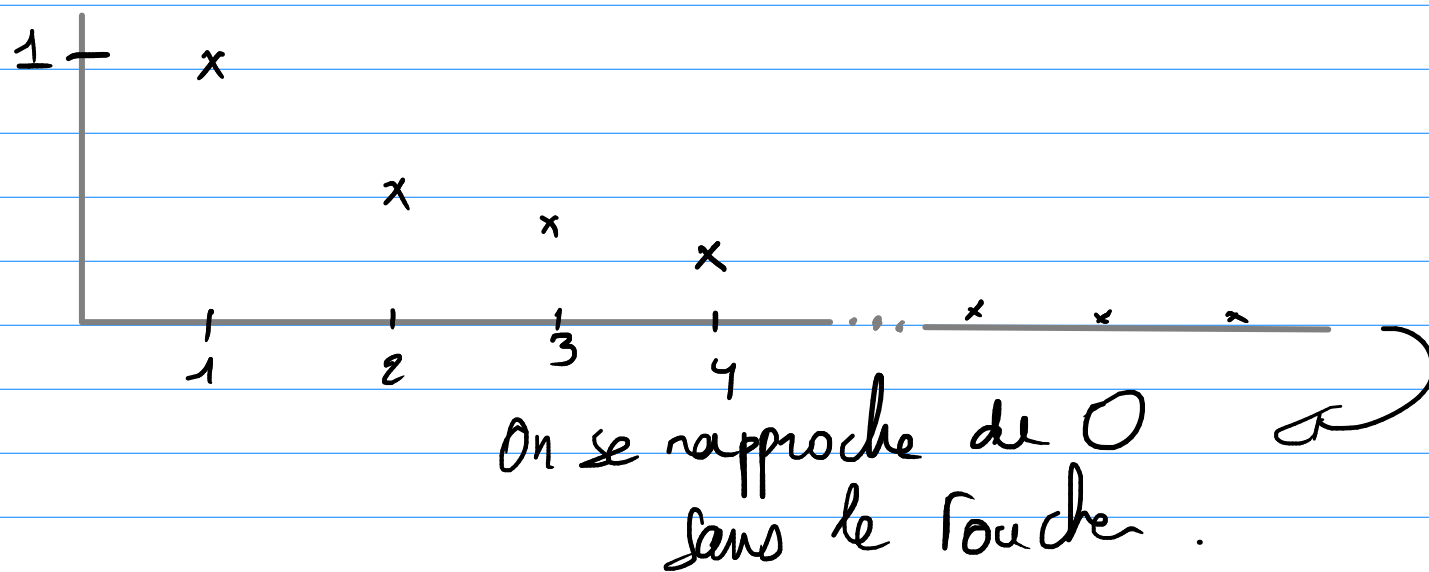 1
1 2 3 4
On se rapproche de 0
sans le toucher.